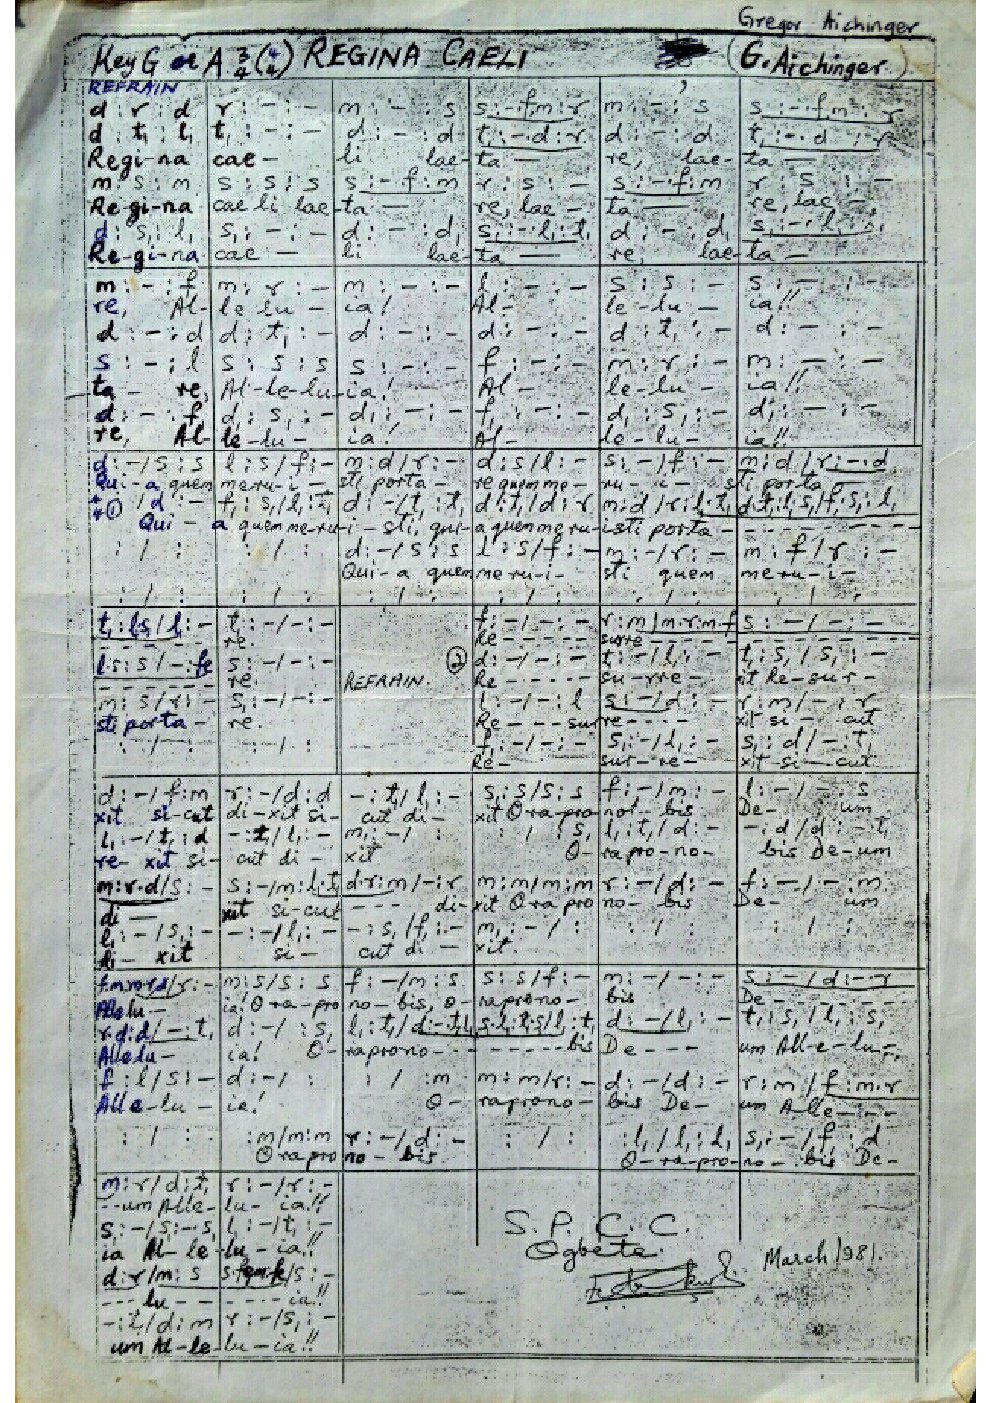 Gregor Aichinger
Key G or A 3/4 (4/4) REGINA CAELI (G. Aichinger)
REFRAIN
d : r : d | r : - : - | m : - : s | s : - f m : r | m : - : s | s : - . f m : r
d : t, : l, | t, : - : - | d : - : d | t, : - . d : r | d : - : d | t, : - . d : r
Regi-na cae - li lae-ta — re, lae-ta —
m : s : m | s : s : s | s : - f : m | r : s : - | s : - . f : m | r : s : -
Re gi-na cae li lae-ta — re, lae - ta — re, lae -
d : s, : l, | s, : - : - | d : - : d, | s, : - . l, : t, | d : - : d, | s, : - . l, :
Re-gi-na cae — li lae-ta — re, lae-ta —
m : - : f | m : r : - | m : - : - | l : - : - | s : s : - | s : - : -
re, Al-le lu - ia! Al- le-lu - ia!!
d : - : d | d : t, : - | d : - : - | d : - : - | d : t, : - | d : - : -
s : - : l | s : s : s | s : - : - | f : - : - | m : r : - | m : - : -
ta - re, Al-le-lu-ia! Al - le-lu - ia!!
d : - : f | d, : s, : - | d, : - : - | f, : - : - | d, : s, : - | d, : - : -
re, Al-le-lu- ia! Al- le-lu- ia!!
d : - / s : s | l : s / f : - | m : d / r : - | d : s / l : - | s : - / f : - | m : d / r : - . d
Qui - a quem me ru - i - sti porta - re quem me - ru - i - sti porta -
① : / d : - | f, : s, / l, : t, | d : - / t, : t, | d : t, / d : r | m : d / r : l, . t,
Qui - a quem me-ru-i - sti, qui-a quem me ru-isti porta -
: / : | : / : | d : - / s : s | l : s / f : - | m : - / r : - | m : f / r : -
Qui-a quem me ru-i- sti quem me ru-i-
: / : | : / : | : / : | : / : | : / : | : / :
t, : l s / l : - | t, : - / - : - | f : - / - : - | r : m / m . r : m . f | s : - / - : -
re. Re surre
l s : s / - : fe | s : - / - : - | REFRAIN. | ② d : - / - : - | t, : - / l, : - | t, : s, / s, : -
re. Re su-rre - it Re-sur -
m : s / r : - | s, : - / - : - | l : - / - : l | s : - / d : - | r : m / - : r
sti porta - re. Re - - - surre - - - - xit si - cut
: / : | : / : | f, : - / - : - | s, : - / l, : - | s, : d / - : t,
Re- sur-re- xit-si-cut
d : - / f : m | r : - / d : d | - : t, / l, : - | s, : s / s : s | f : - / m : - | l : - / - : s
xit si-cut di-xit si- cut di- xit Ora pro no - bis De- um
l, : - / t, : d | - : t, / l, : - | m, : - / : | : / : s, | l, : t, / d : - | - : d / d : - t,
re- xit si- cut di - xit O- ra pro-no- bis De-um
m : r . d / s : - | s : - / m : l . t, | d : r : m / - : r | m : m / m : m | r : - / d : - | f : - / - : m
di — xit si-cut - - - di- xit Ora pro no- bis De- um
l, : - / s, : - | - : - / l, : - | - : s, / f, : - | m, : - / : | : / : | : / :
di- xit si- cut di - xit.
m : s / s : s | f : - / m : s | s : s / f : - | m : - / - : - | s : - / d : - - r
Allelu- ia! Ora-pro no-bis, o- ra pro no- bis De -
r : d : d / - : t, | d : - / : s,
Allelu- ia! O- rapro no- bis De - - - um All-e-lu-
f : l / s : - | d : - / : | : / : m | m : m / r : - | d : - / d : - | r : m / f : m . r
Alle-lu - ia! O- ra pro no- bis De- um Alle- - -
: / : | : m / m : m | r : - / d : - | : / : | : l, / l, : l, | s, : - / f : d
Ora pro no - bis O-ra-pro-no- bis De-
m : r / d : t, | r : - / r : -
- - um Alle-lu- ia!!
s, : - / s, : - s, | l, : - / t, : -
ia Al- le-lu-ia!!
d : r / m : s
- - - lu - - - - - ia!!
- : t, / d : m | r : - / s, : -
um Al-le-lu-ia!!
S. P. C. C.
Ogbete.
March 1981.